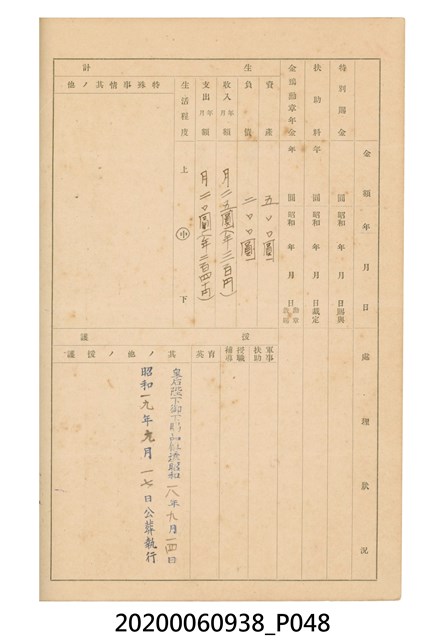 金額 年月日 處理狀況
特別賜金 圓 昭和 年 月 日賜與
扶助料 年 圓 昭和 年 月 日裁定
金鵄勳章年金 年 圓 昭和 年 月 日
生計
資産 五〇〇圓
負債 二〇〇圓
收入 年月額 月二五圓(年三百円)
支出 年月額 月二〇圓(年二百四十円)
生活程度 上 中 下
特殊事情其ノ他
援護
軍事扶助
授職補導
育英
其ノ他ノ援護
皇后陛下御下賜 昭和一八年九月一四日
昭和一九年九月一七日公葬執行
20200060938_P048